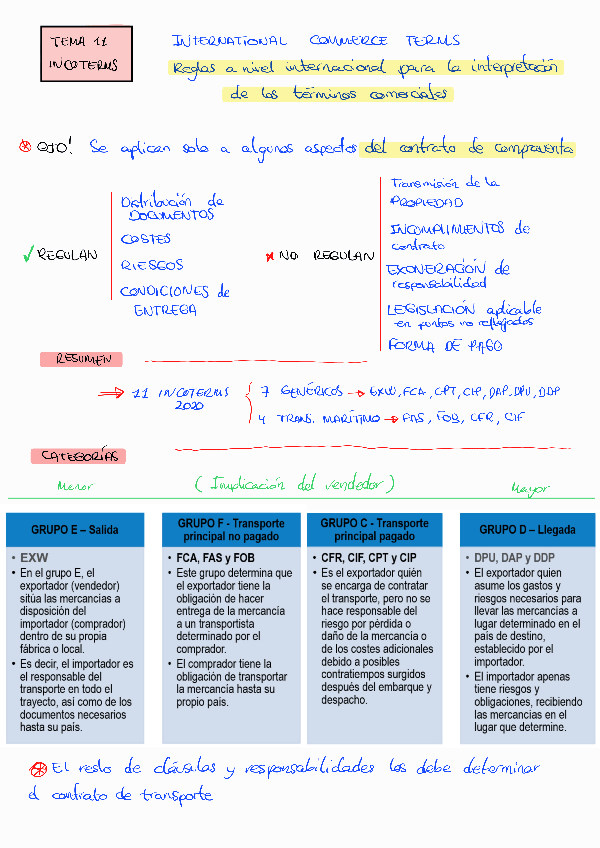 TEMA 11
INCOTERMS
INTERNATIONAL COMMERCE TERMS
Reglas a nivel internacional para la interpretación
de los términos comerciales
OJO! Se aplican solo a algunos aspectos del contrato de compraventa
✓ REGULAN
Distribución de
DOCUMENTOS
COSTES
RIESGOS
CONDICIONES de
ENTREGA
× NO REGULAN
Transmisión de la
PROPIEDAD
INCUMPLIMIENTOS de
contrato
EXONERACIÓN de
responsabilidad
LEGISLACIÓN aplicable
en puntos no reflejados
FORMA DE PAGO
RESUMEN
⇒ 11 INCOTERMS
2020
7 GENÉRICOS → EXW, FCA, CPT, CIP, DAP, DPU, DDP
4 TRANS. MARÍTIMO → FAS, FOB, CFR, CIF
CATEGORÍAS
Menor (Implicación del vendedor) Mayor
GRUPO E – Salida
• EXW
• En el grupo E, el
exportador (vendedor)
sitúa las mercancías a
disposición del
importador (comprador)
dentro de su propia
fábrica o local.
• Es decir, el importador es
el responsable del
transporte en todo el
trayecto, así como de los
documentos necesarios
hasta su país.
GRUPO F - Transporte
principal no pagado
• FCA, FAS y FOB
• Este grupo determina que
el exportador tiene la
obligación de hacer
entrega de la mercancía
a un transportista
determinado por el
comprador.
• El comprador tiene la
obligación de transportar
la mercancía hasta su
propio país.
GRUPO C - Transporte
principal pagado
• CFR, CIF, CPT y CIP
• Es el exportador quién
se encarga de contratar
el transporte, pero no se
hace responsable del
riesgo por pérdida o
daño de la mercancía o
de los costes adicionales
debido a posibles
contratiempos surgidos
después del embarque y
despacho.
GRUPO D – Llegada
• DPU, DAP y DDP
• El exportador quien
asume los gastos y
riesgos necesarios para
llevar las mercancías a
lugar determinado en el
país de destino,
establecido por el
importador.
• El importador apenas
tiene riesgos y
obligaciones, recibiendo
las mercancías en el
lugar que determine.
El resto de cláusulas y responsabilidades las debe determinar
el contrato de transporte